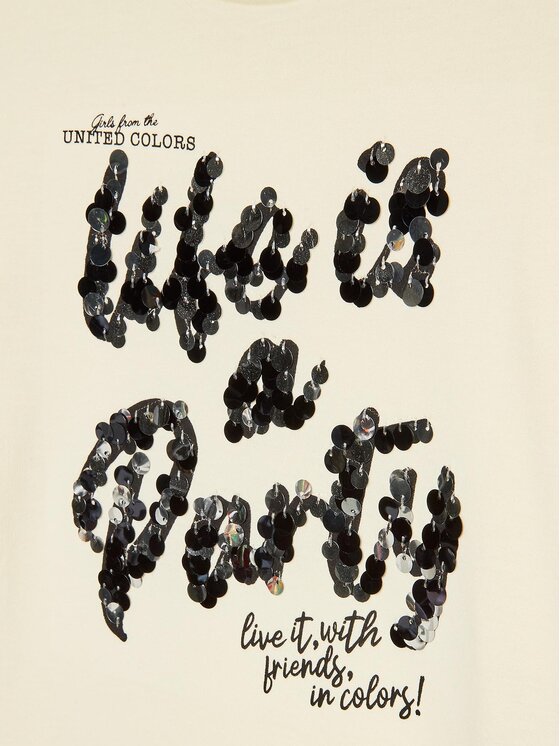 Girls from the
UNITED COLORS
life is
a
Party
live it, with
friends,
in colors!